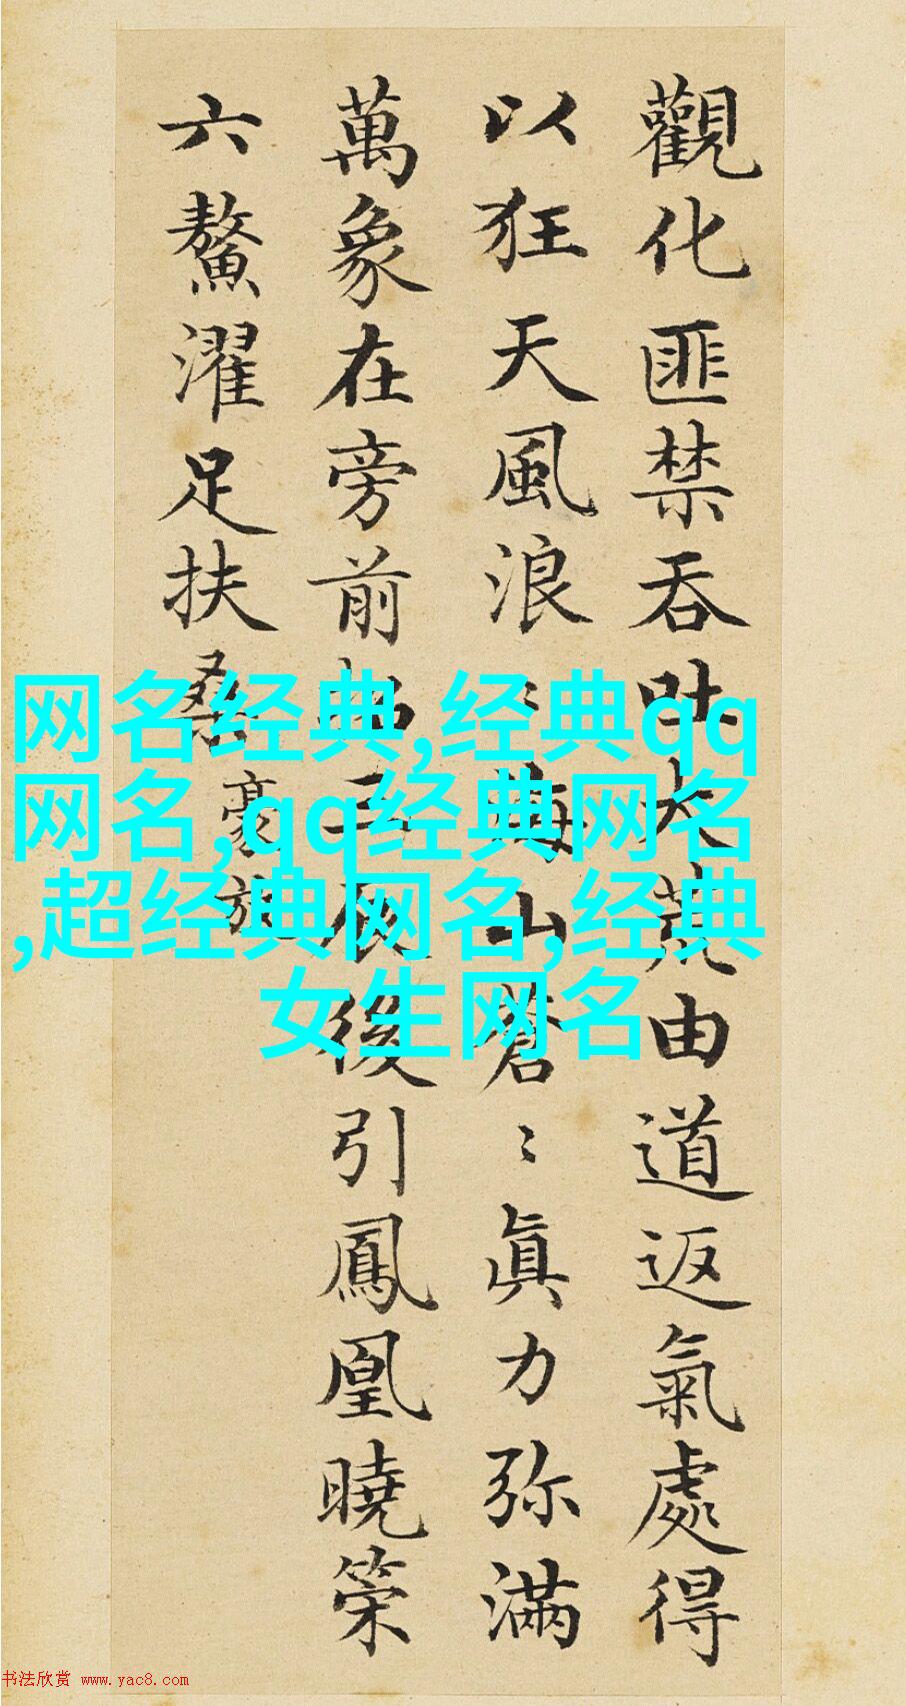 觀化匪禁吞吐大荒由道返氣處得
以狂天風浪〻海山蒼〻眞力弥滿
萬象在旁前招三辰後引鳳凰曉策
六鰲濯足扶桑
豪放
网名经典,经典qq
网名,qq经典网名
,超经典网名,经典
女生网名
书法欣赏 www.yac8.com